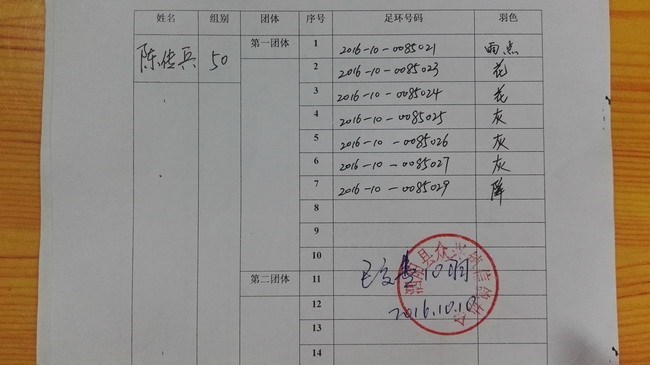 姓名 组别 团体 序号 足环号码 羽色
陈传兵 50 第一团体 1 2016-10-0085021 雨点
2 2016-10-0085023 花
3 2016-10-0085024 花
4 2016-10-0085025 灰
5 2016-10-0085026 灰
6 2016-10-0085027 灰
7 2016-10-0085029 绛
8
9
10
第二团体 11
12 2016.10.10
13
14